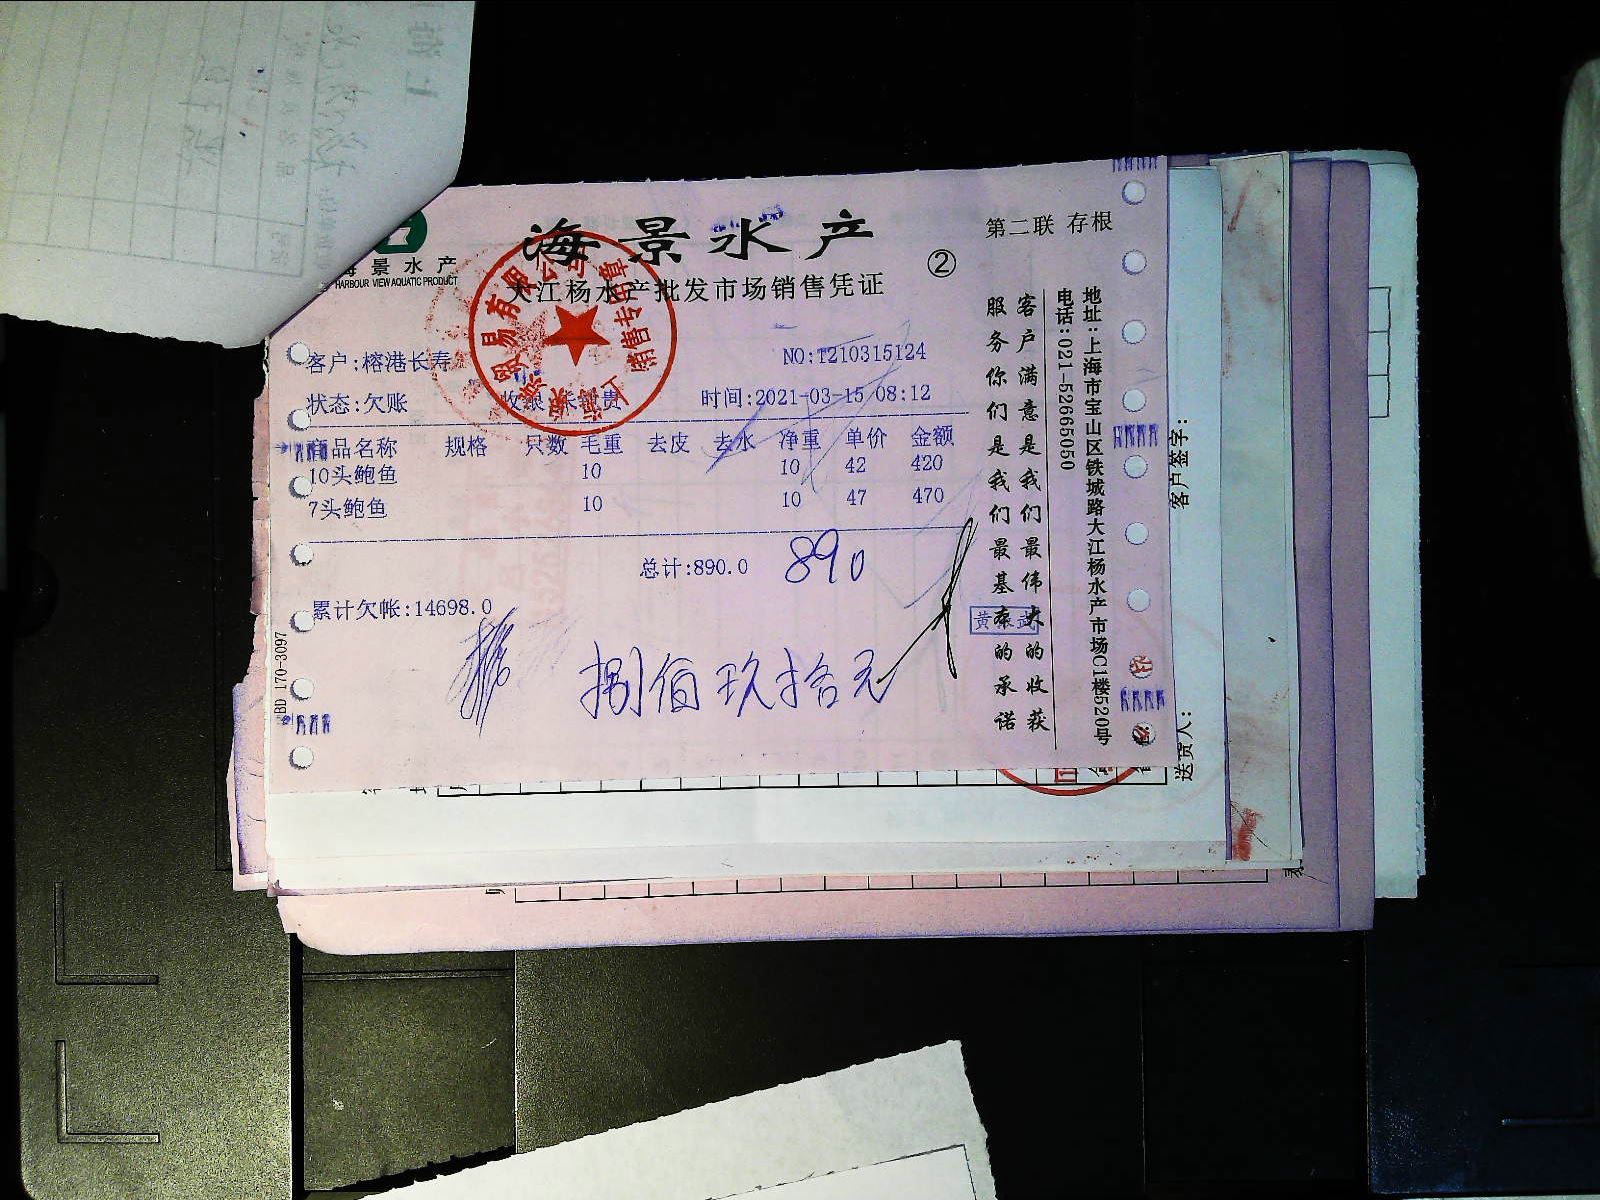 海景水产
第二联 存根
②
景水产
HARBOUR VIEW AQUATIC PRODUCT
大江杨水产批发市场销售凭证
客户:榕港长寿
NO:T210315124
状态:欠账
时间:2021-03-15 08:12
商品名称 规格 只数 毛重 去皮 去水 净重 单价 金额
10头鲍鱼 10 10 42 420
7头鲍鱼 10 10 47 470
总计:890.0 890
累计欠帐:14698.0
捌佰玖拾元
客户满意是我们最伟大的收获
服务你们是我们最基本的承诺
地址:上海市宝山区铁城路大江杨水产市场C1楼520号
电话:021-52665050
BD 170-3097
销售专用章
客户签字:
送货人: